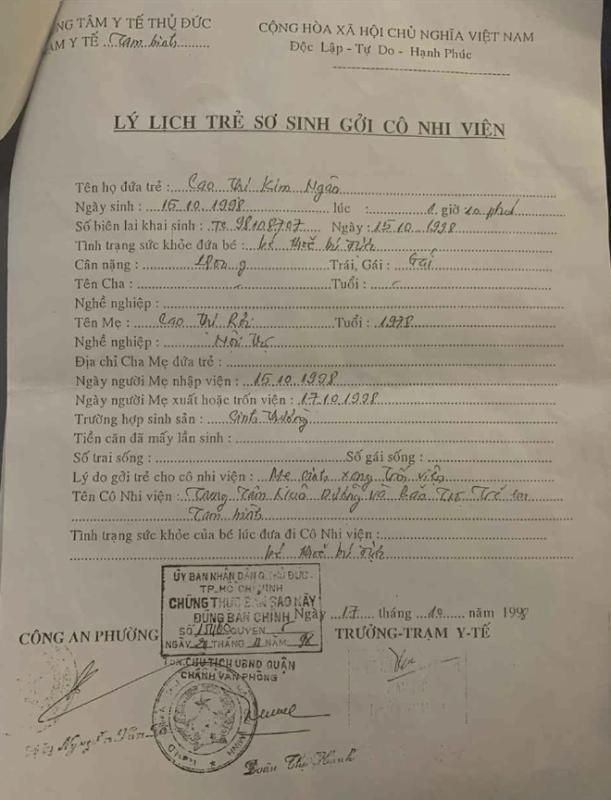 NG TÂM Y TẾ THỦ ĐỨC
ẠM Y TẾ Tam bình
CỘNG HÒA XÃ HỘI CHỦ NGHĨA VIỆT NAM
Độc Lập - Tự Do - Hạnh Phúc
LÝ LỊCH TRẺ SƠ SINH GỞI CÔ NHI VIỆN
Tên họ đứa trẻ : Cao Thị Kim Ngân
Ngày sinh : 15.10.1998 lúc : 1 giờ 10 phút
Số biên lai khai sinh : 98108707 Ngày : 15.10.1998
Tình trạng sức khỏe đứa bé :
Cân nặng : g Trái, Gái : Gái
Tên Cha : Tuổi :
Nghề nghiệp :
Tên Mẹ : Cao Thị Rồi Tuổi : 1978
Nghề nghiệp : Nội Trợ
Địa chỉ Cha Mẹ đứa trẻ :
Ngày người Mẹ nhập viện : 15.10.1998
Ngày người Mẹ xuất hoặc trốn viện : 17.10.1998
Trường hợp sinh sản : Sinh thường
Tiền căn đã mấy lần sinh :
Số trai sống : Số gái sống :
Lý do gởi trẻ cho cô nhi viện : Mẹ sinh xong trốn viện
Tên Cô Nhi Viện : Trung Tâm Nuôi Dưỡng và Bảo Trợ Trẻ em
Tam bình
Tình trạng sức khỏe của bé lúc đưa đi Cô Nhi Viện :
ỦY BAN NHÂN DÂN Q. THỦ ĐỨC
TP. HỒ CHÍ MINH
CHỨNG THỰC BẢN SAO NÀY
ĐÚNG BẢN CHÍNH
SỐ QUYỂN
NGÀY THÁNG NĂM 98
Ngày 17 tháng 10 năm 1998
CÔNG AN PHƯỜNG
TRƯỞNG-TRẠM Y-TẾ
CHỦ TỊCH UBND QUẬN
CHÁNH VĂN PHÒNG
Đoàn Thị Hạnh